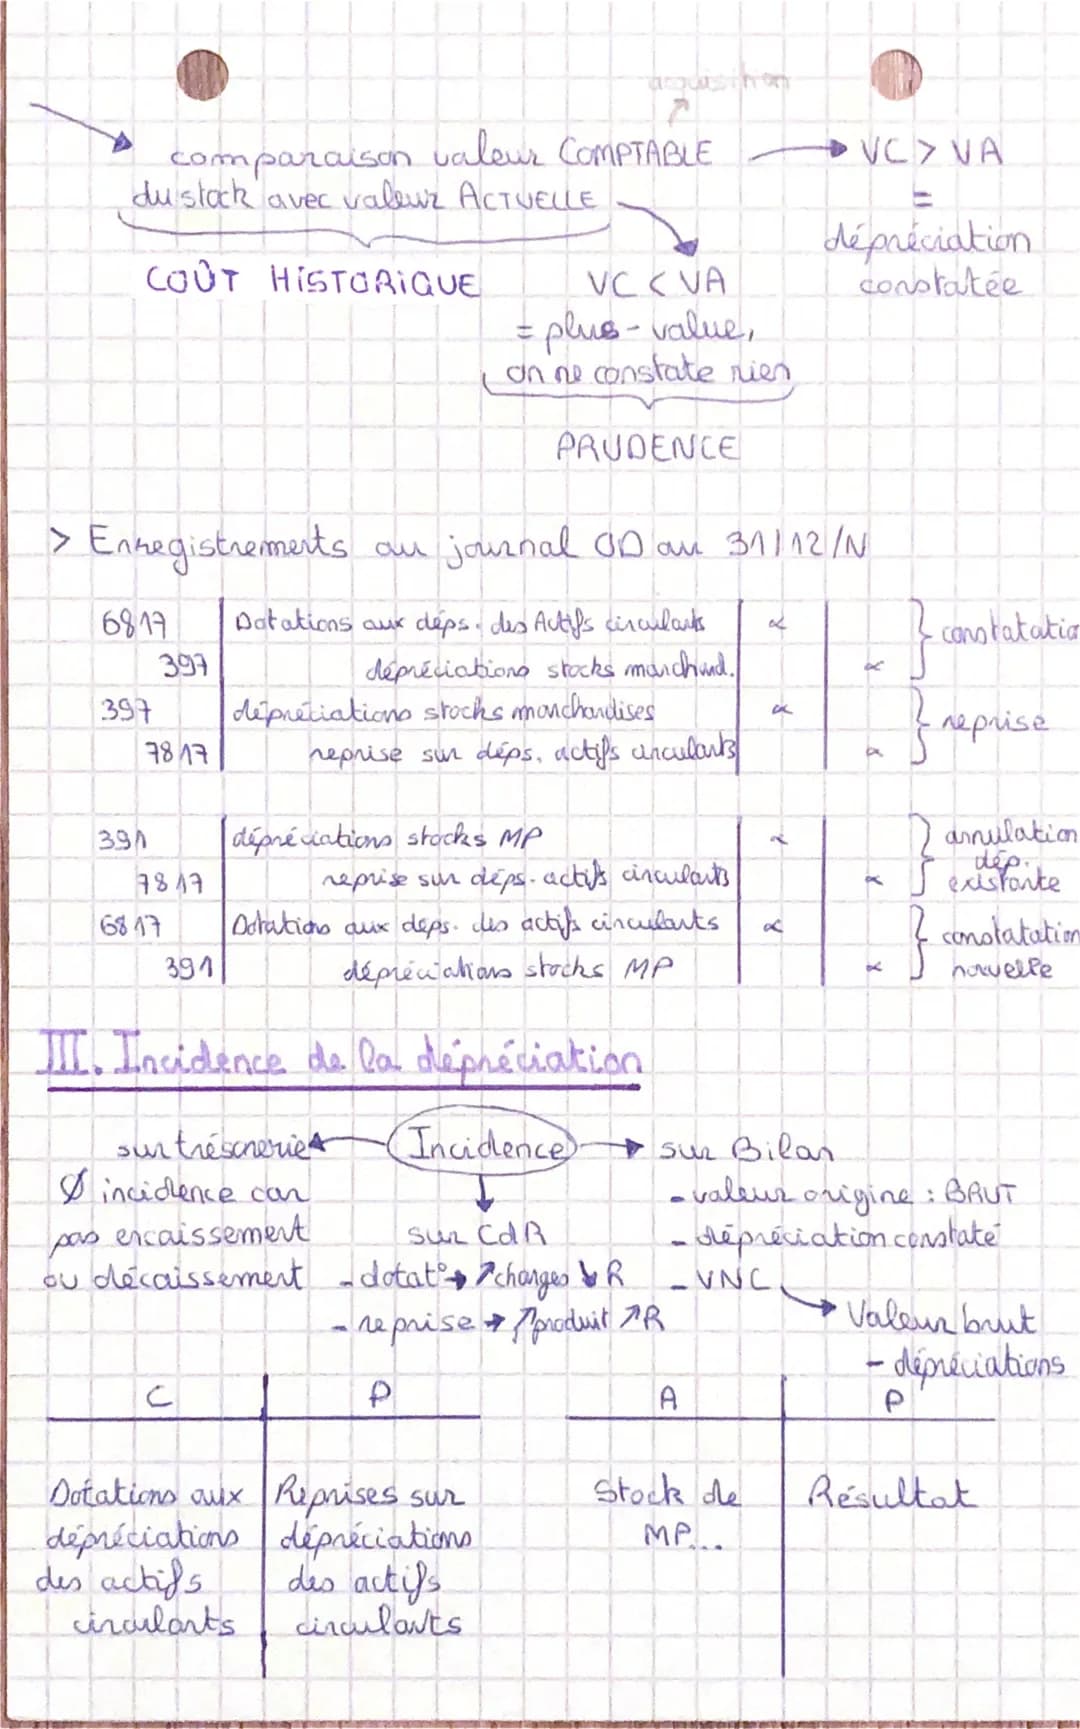 acquisition
comparaison valeur COMPTABLE → VC > VA
du stock avec valeur ACTUELLE
=
dépréciation
constatée
COÛT HISTORIQUE
VC < VA
= plus-value,
on ne constate rien
PRUDENCE
> Enregistrements au journal OD au 31/12/N
6817 Dotations aux déps. des Actifs circulants x
397 dépréciations stocks marchand. x
constatatio
397 dépréciations stocks marchandises x
7817 reprise sur déps. actifs circulants x
reprise
391 dépréciations stocks MP x
7817 reprise sur déps. actifs circulants x
annulation
dép.
existante
6817 Dotations aux déps. des actifs circulants x
391 dépréciations stocks MP x
constatation
nouvelle
III. Incidence de la dépréciation
sur trésorerie ← Incidence → sur Bilan
Ø incidence car
pas encaissement
ou décaissement
↓
sur CdR
- dotat° → ↗ charges ↘ R
- reprise → ↗ produit ↗ R
- valeur origine : BRUT
- dépréciation constaté
- VNC
→ Valeur brut
- dépréciations
C P
Dotations aux
dépréciations
des actifs
circulants
Reprises sur
dépréciations
des actifs
circulants
A P
Stock de
MP...
Résultat